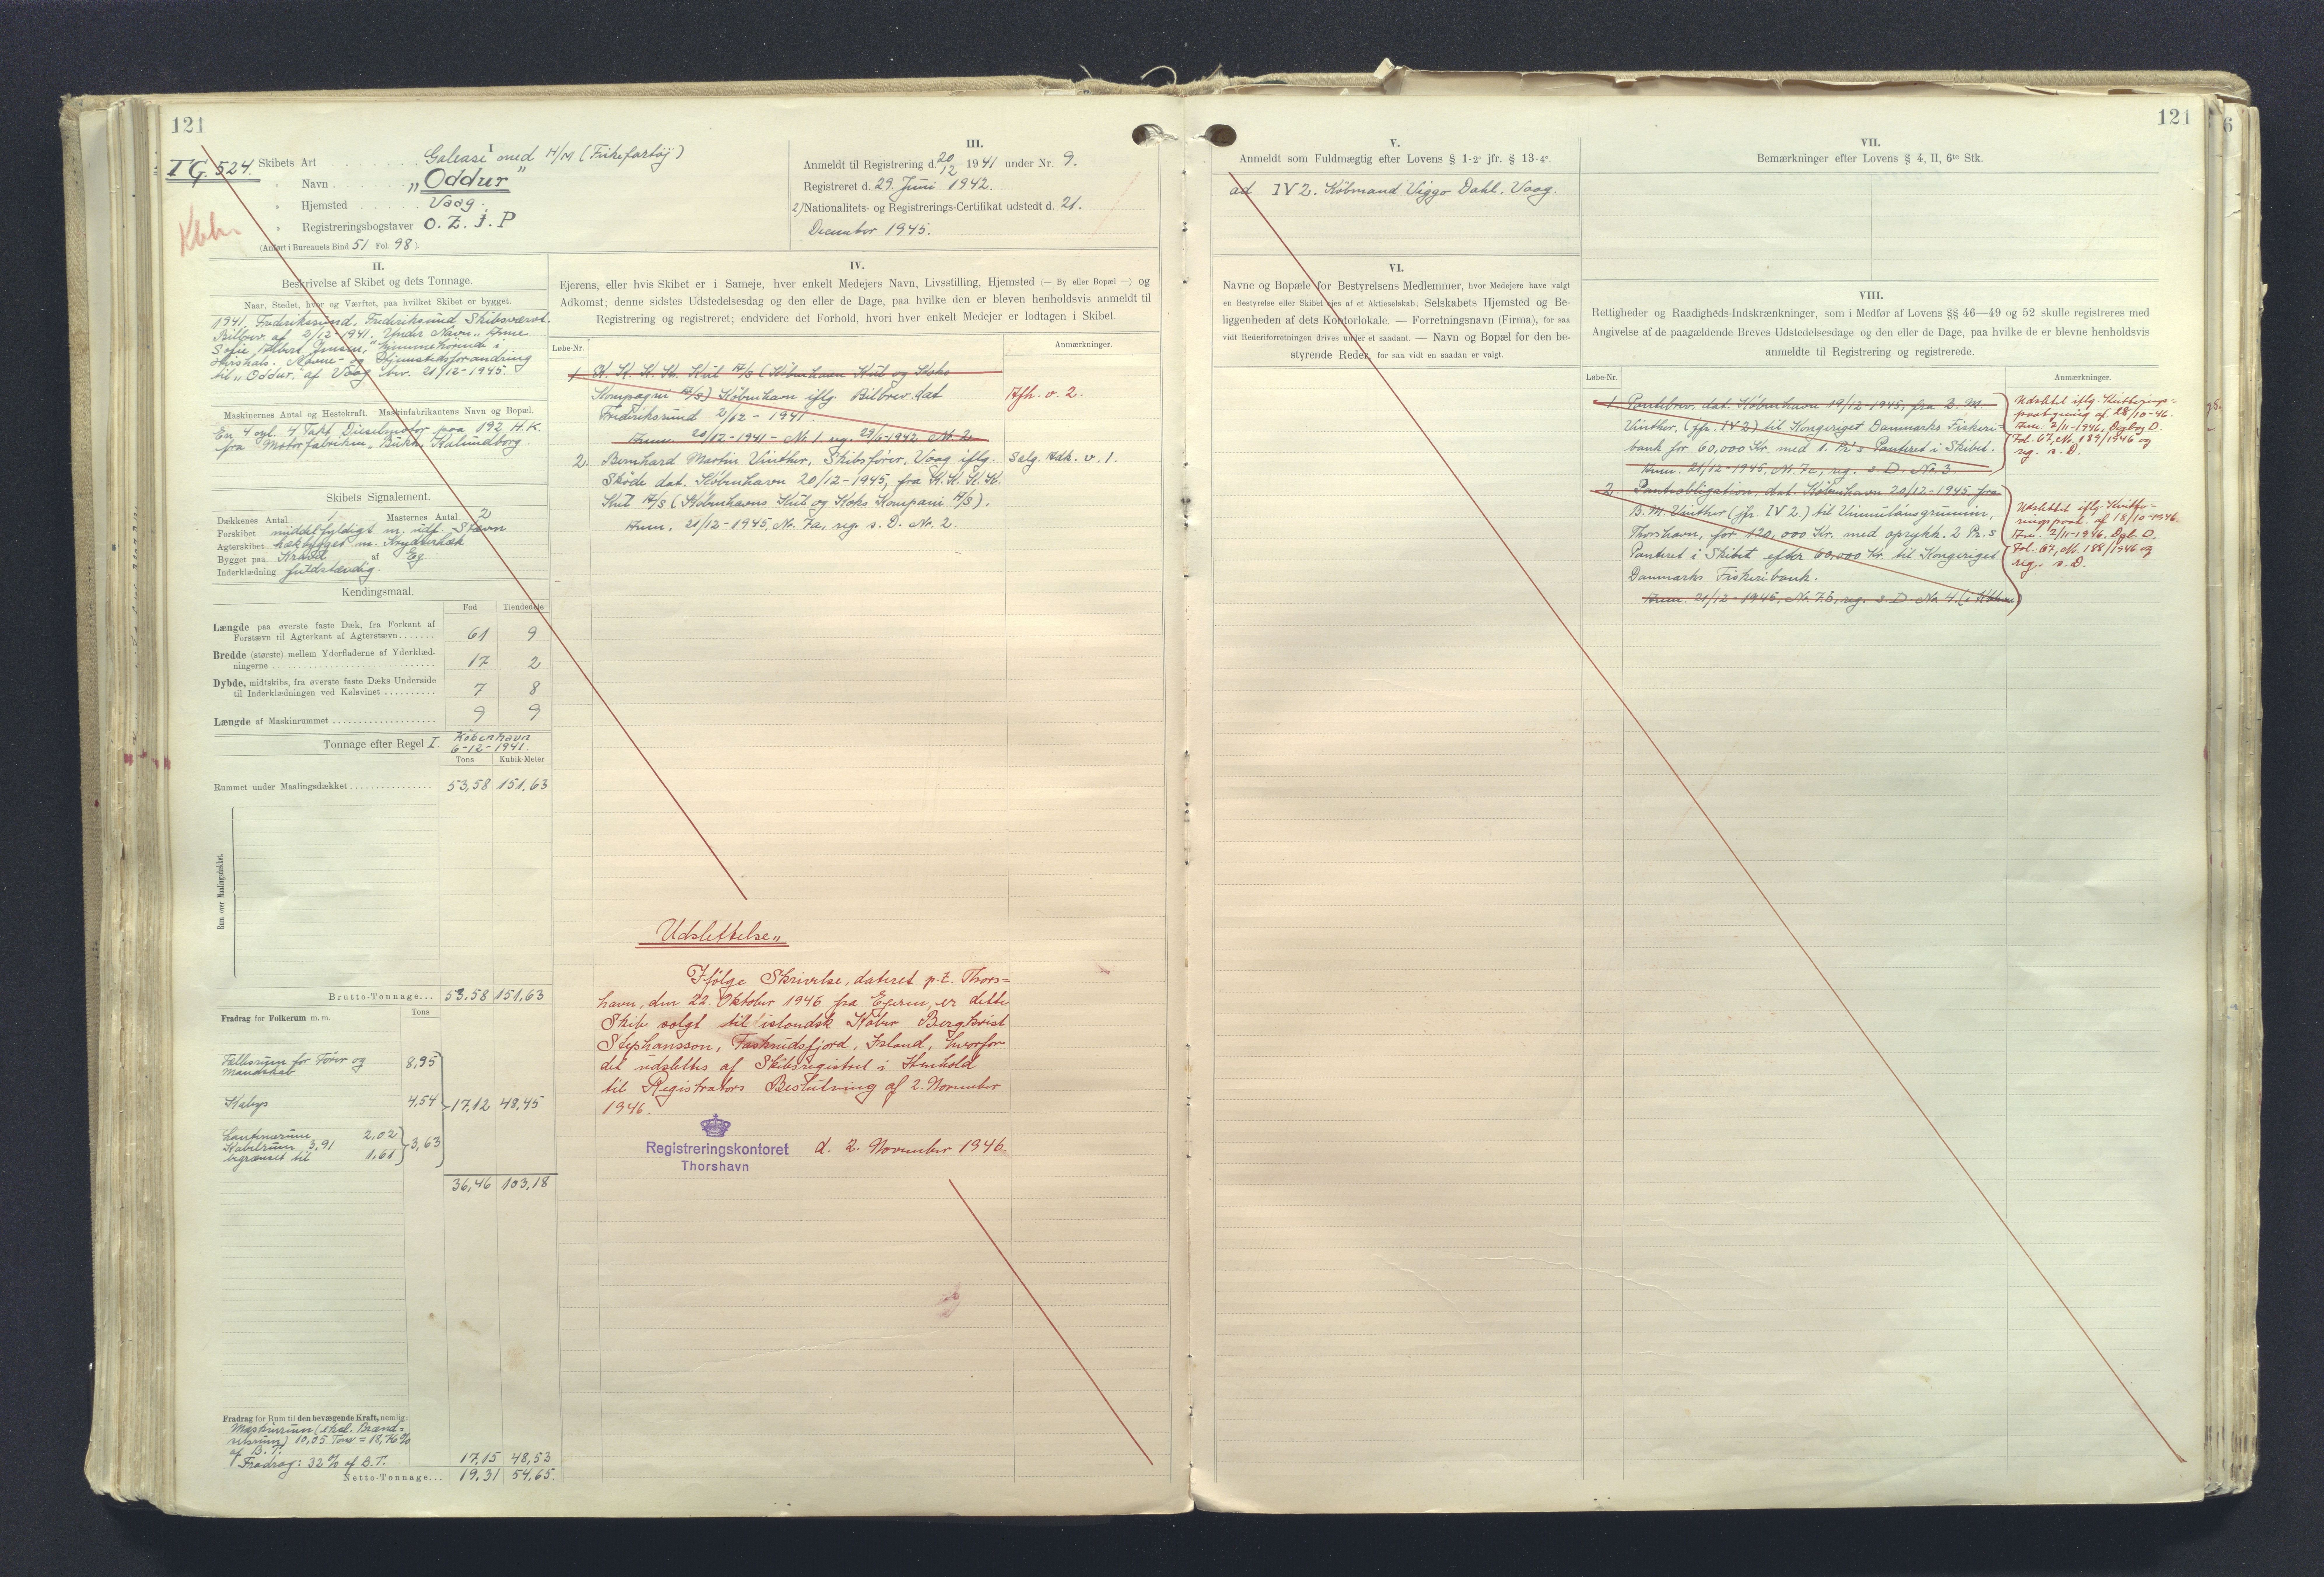 121
TG. 524.
Kbh.
I
Skibets Art . . . . . . . Galease med H/M (Fiskefartøj)
" Navn . . . . . . . „Oddur”
" Hjemsted . . . . . Vaag.
" Registreringsbogstaver O. Z. J. P
(Anført i Bureauets Bind 51 Fol. 98).
III.
Anmeldt til Registrering d. 20/12 1941 under Nr. 9.
Registreret d. 29. Juni 1942.
2) Nationalitets- og Registrerings-Certifikat udstedt d. 21.
December 1945.
II.
Beskrivelse af Skibet og dets Tonnage.
Naar, Stedet, hvor og Værftet, paa hvilket Skibet er bygget.
1941, Frederikssund, Frederikssund Skibsværft.
Bilbrev af 2/12-1941. Under Navn „Anne
Sofie Albert Jensen,” hjemmehörende i
Hirshals. Navne- og Hjemstedsforandring
til „Oddur” af Vaag bev. 21/12-1945.
Maskinernes Antal og Hestekraft. Maskinfabrikantens Navn og Bopæl.
En 4 cyl. 4 Takt Dieselmotor paa 192 H.K.
fra Motorfabriken „Bukh, Kalundborg.
Skibets Signalement.
Dækkenes Antal 1 Masternes Antal 2
Forskibet middelfyldigt m. udf. Stævn
Agterskibet hækbygget m. Krydserhæk
Bygget paa Kravel af Eg
Inderklædning fuldstændig.
Kendingsmaal.
Fod Tiendedele
Længde paa øverste faste Dæk, fra Forkant af
Forstævn til Agterkant af Agterstævn....... 61 9
Bredde (største) mellem Yderfladerne af Yderklæd-
ningerne ................................ 17 2
Dybde, midtskibs, fra øverste faste Dæks Underside
til Inderklædningen ved Kølsvinet .......... 7 8
Længde af Maskinrummet .................... 9 9
Tonnage efter Regel I. København
6-12-1941.
Tons Kubik-Meter
Rummet under Maalingsdækket ................ 53,58 151,63
Rum over Maalingsdækket.
Brutto-Tonnage... 53,58 151,63
Fradrag for Folkerum m. m. Tons
Fællesrum for Fører og
Mandskab 8,95
Kabys 4,54 17,12 48,45
Lanternerum 2,02
Kabelrum 3,91 3,63
begrænset til 1,61
36,46 103,18
Fradrag for Rum til den bevægende Kraft, nemlig:
Maskinrum (eksl. Brænd-
selsrum) 10,05 Tons = 18,76 %
af B.T.
Fradrag: 32 % af B.T. 17,15 48,53
Netto-Tonnage... 19,31 54,65.
IV.
Ejerens, eller hvis Skibet er i Sameje, hver enkelt Medejers Navn, Livsstilling, Hjemsted (— By eller Bopæl —) og
Adkomst; denne sidstes Udstedelsesdag og den eller de Dage, paa hvilke den er bleven henholdsvis anmeldt til
Registrering og registreret; endvidere det Forhold, hvori hver enkelt Medejer er lodtagen i Skibet.
Løbe-Nr. Anmærkninger.
1. K. K. K. K. Kul A/S (København Kul og Koks
Kompagni A/S) København iflg. Bilbrev dat
Frederikssund 2/12 - 1941. Afh. v. 2.
Anm. 20/12-1941 - Nr. 1 reg. 29/6-1942 Nr. 2.
2. Bernhard Martin Vinther, Skibsfører, Vaag iflg. Salg. Adk. v. 1.
Skøde dat. København 20/12-1945, fra K. K. K. K.
Kul A/S (Københavns Kul og Koks Kompani A/S).
Anm. 21/12-1945, Nr. 7a, reg. s. D. Nr. 2.
Udslettelse„
Ifölge Skrivelse, dateret p.t. Thors=
havn, den 22. Oktober 1946 fra Ejeren, er dette
Skib solgt til islandsk Köber Bergkvist
Stephansson, Faskrudsfjord, Island, hvorfor
det udslettes af Skibsregistret i Henhold
til Registrators Beslutning af 2. November
1946.
Registreringskontoret
Thorshavn
d. 2. November 1946.
121
V.
Anmeldt som Fuldmægtig efter Lovens § 1-2° jfr. § 13-4°.
ad IV 2. Købmand Viggo Dahl, Vaag.
VI.
Navne og Bopæle for Bestyrelsens Medlemmer, hvor Medejere have valgt
en Bestyrelse eller Skibet ejes af et Aktieselskab; Selskabets Hjemsted og Be-
liggenheden af dets Kontorlokale. — Forretningsnavn (Firma), for saa
vidt Rederiforretningen drives under et saadant. — Navn og Bopæl for den be-
styrende Reder, for saa vidt en saadan er valgt.
VII.
Bemærkninger efter Lovens § 4, II, 6te Stk.
VIII.
Rettigheder og Raadigheds-Indskrænkninger, som i Medfør af Lovens §§ 46—49 og 52 skulle registreres med
Angivelse af de paagældende Breves Udstedelsesdage og den eller de Dage, paa hvilke de er blevne henholdsvis
anmeldte til Registrering og registrerede.
Løbe-Nr. Anmærkninger.
1 Pantebrev. dat. København 19/12-1945, fra B. M.
Vinther, (jfr. IV 2) til Kongeriget Danmarks Fiskeri=
bank for 60,000 Kr. med 1. Pr's Panteret i Skibet.
Anm. 21/12-1945. Nr. 7c, reg. s. D. Nr. 3.
Udslettet iflg. Kvitterings=
paategning af 28/10-46.
Anm. 2/11-1946, Dagbog D.
Fol. 67, Nr. 189/1946 og
reg. s. D.
2. Panteobligation, dat. København 20/12-1945, fra
B. M. Vinther (jfr. IV 2.) til Vinnulánsgrunnin,
Thorshavn, for 120,000 Kr. med oprykk. 2 Pr. s
Panteret i Skibet efter 60,000 Kr. til Kongeriget
Danmarks Fiskeribank.
Anm. 21/12-1945, Nr. 7b, reg. s. D. Nr. 4.
Udslettet iflg. Kvitte=
ringspaat. af 18/10-1946.
Anm. 2/11-1946. Dgb. D.
Fol. 67, Nr. 188/1946 og
reg. s. D.
6